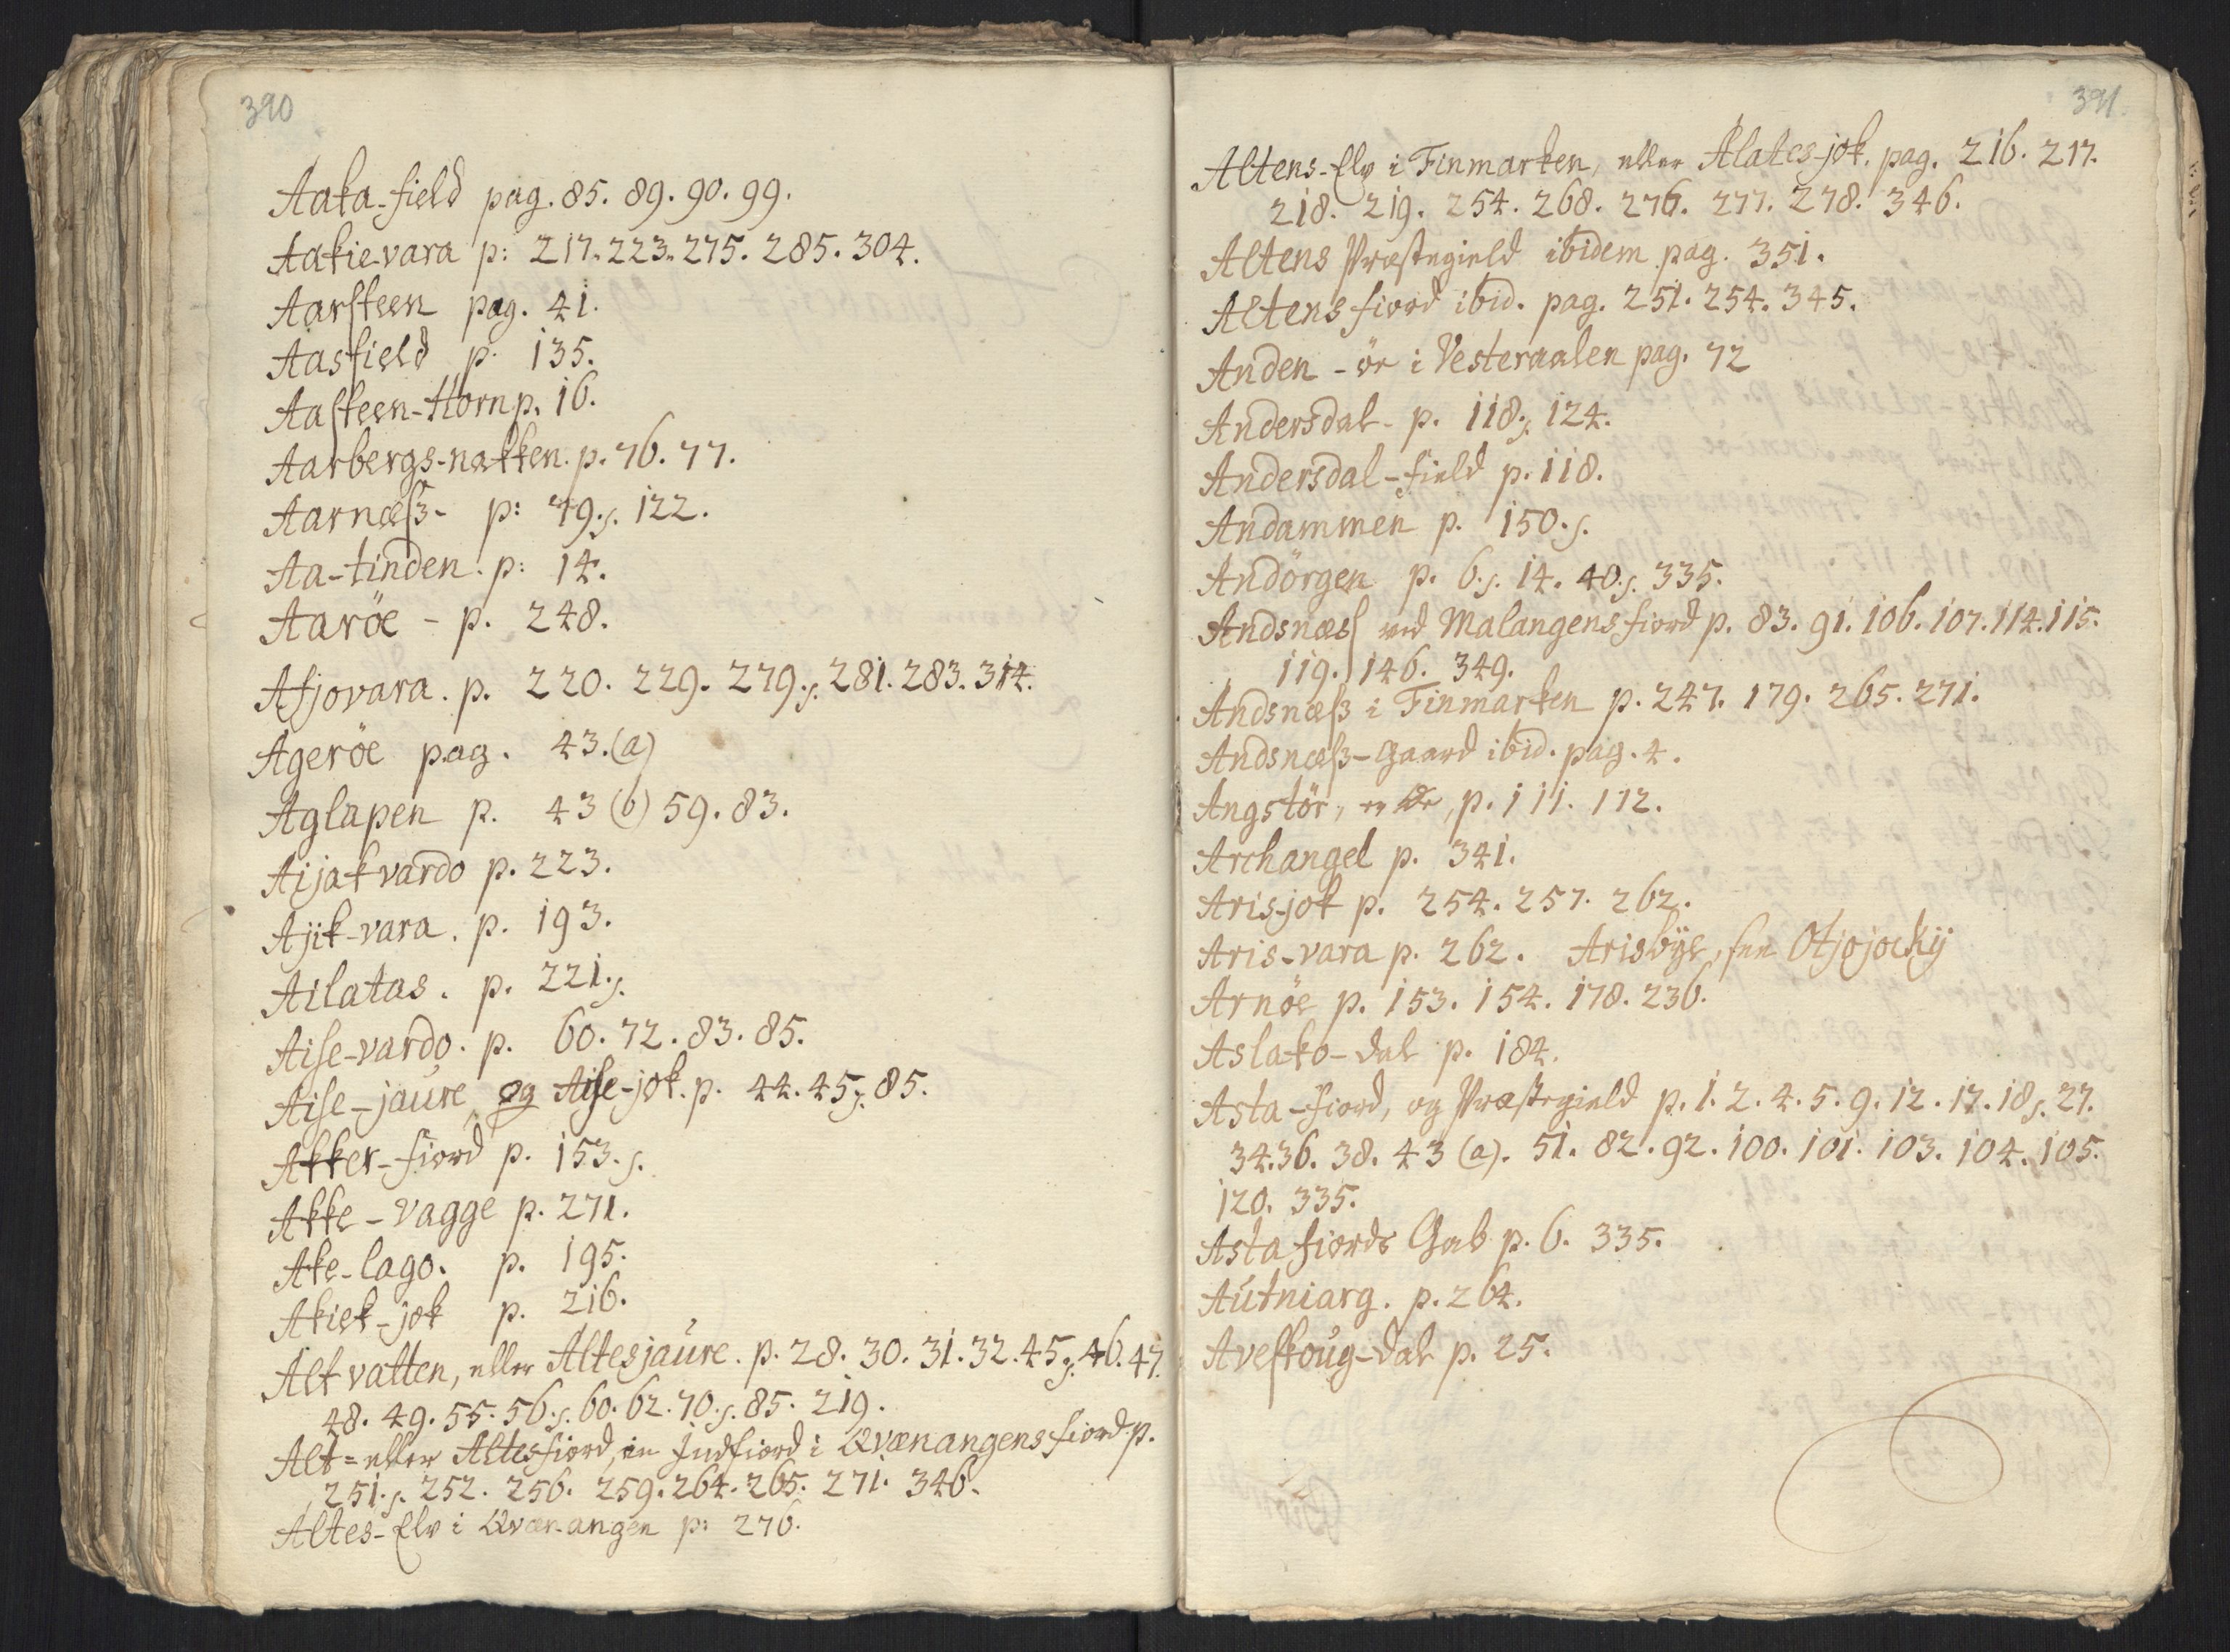 390
Aaka-field pag. 85. 89. 90. 99.
Aakie-vara p: 217. 223. 275. 285. 304.
Aarsteen pag. 41.
Aasfield p. 135.
Aasteen-Horn p. 16.
Aarbergs-nakken. p. 76. 77.
Aarnæss- p: 79.s. 122.
Aa-tinden. p: 14.
Aaröe - p. 248.
Afjovara. p. 220. 229. 279.s. 281. 283. 314.
Ageröe pag. 43.(a)
Aglapen p. 43 (b) 59. 83.
Aijakvardo p. 223.
Ajik-vara. p. 193.
Ailatas. p. 221.s.
Aise-vardo. p. 60. 72. 83. 85.
Aise-jaure og Aise-jok. p. 44. 45.s. 85.
Akker-fiord p. 153.s.
Akke-vagge p. 271.
Ake-lago. p. 195.
Akiek-jok p. 216.
Alt vatten, eller Altesjaure. p. 28. 30. 31. 32. 45.s. 46. 47.
48. 49. 55. 56.s. 60. 62. 70.s. 85. 219.
Alt= eller Altesfiord, en Indfiord i Qvænangens fiord p.
251.s. 252. 256. 259. 264. 265. 271. 346.
Altes-Elv i Qvæn-angen p: 276.
391.
Altens-Elv i Finmarken, eller Alates-jok. pag. 216. 217.
218. 219. 254. 268. 276. 277. 278. 346.
Altens Præstegield ibidem pag. 351.
Altens fiord ibid. pag. 251. 254. 345.
Anden-ör i Vesteraalen pag. 72
Andersdal- p. 118.s. 124.
Andersdal-field p. 118.
Andammen p. 150.s.
Andörgen p. 6.s. 14. 40.s. 335.
Andsnæss ved Malangens fiord p. 83. 91. 106. 107. 114. 115.
119. 146. 349.
Andsnæss i Finmarken p. 247. 179. 265. 271.
Andsnæss-Gaard ibid. pag. 4.
Angstör, en Öe, p. 111. 112.
Archangel p. 341.
Aris-jok p. 254. 257. 262.
Aris-vara p. 262. Arisbÿe, see Otjojockij
Arnöe p. 153. 154. 178. 236.
Aslako-dal p. 184.
Asta-fiord, og Præstegield p. 1. 2. 4. 5. 9. 12. 17. 18.s. 27.
34. 36. 38. 43 (a). 51. 82. 92. 100. 101. 103. 104. 105.
120. 335.
Asta fiords Gab p. 6. 335.
Autniarg. p. 264.
Aveskoug-dal p. 25.